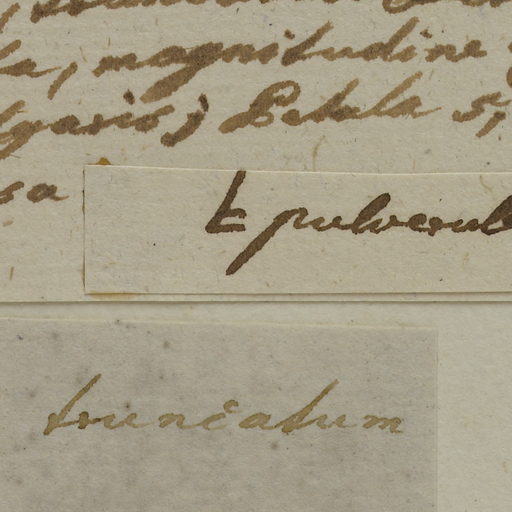 la, magnitudine
lgaris) Petala 5,
sa
t pulverul
truncatum